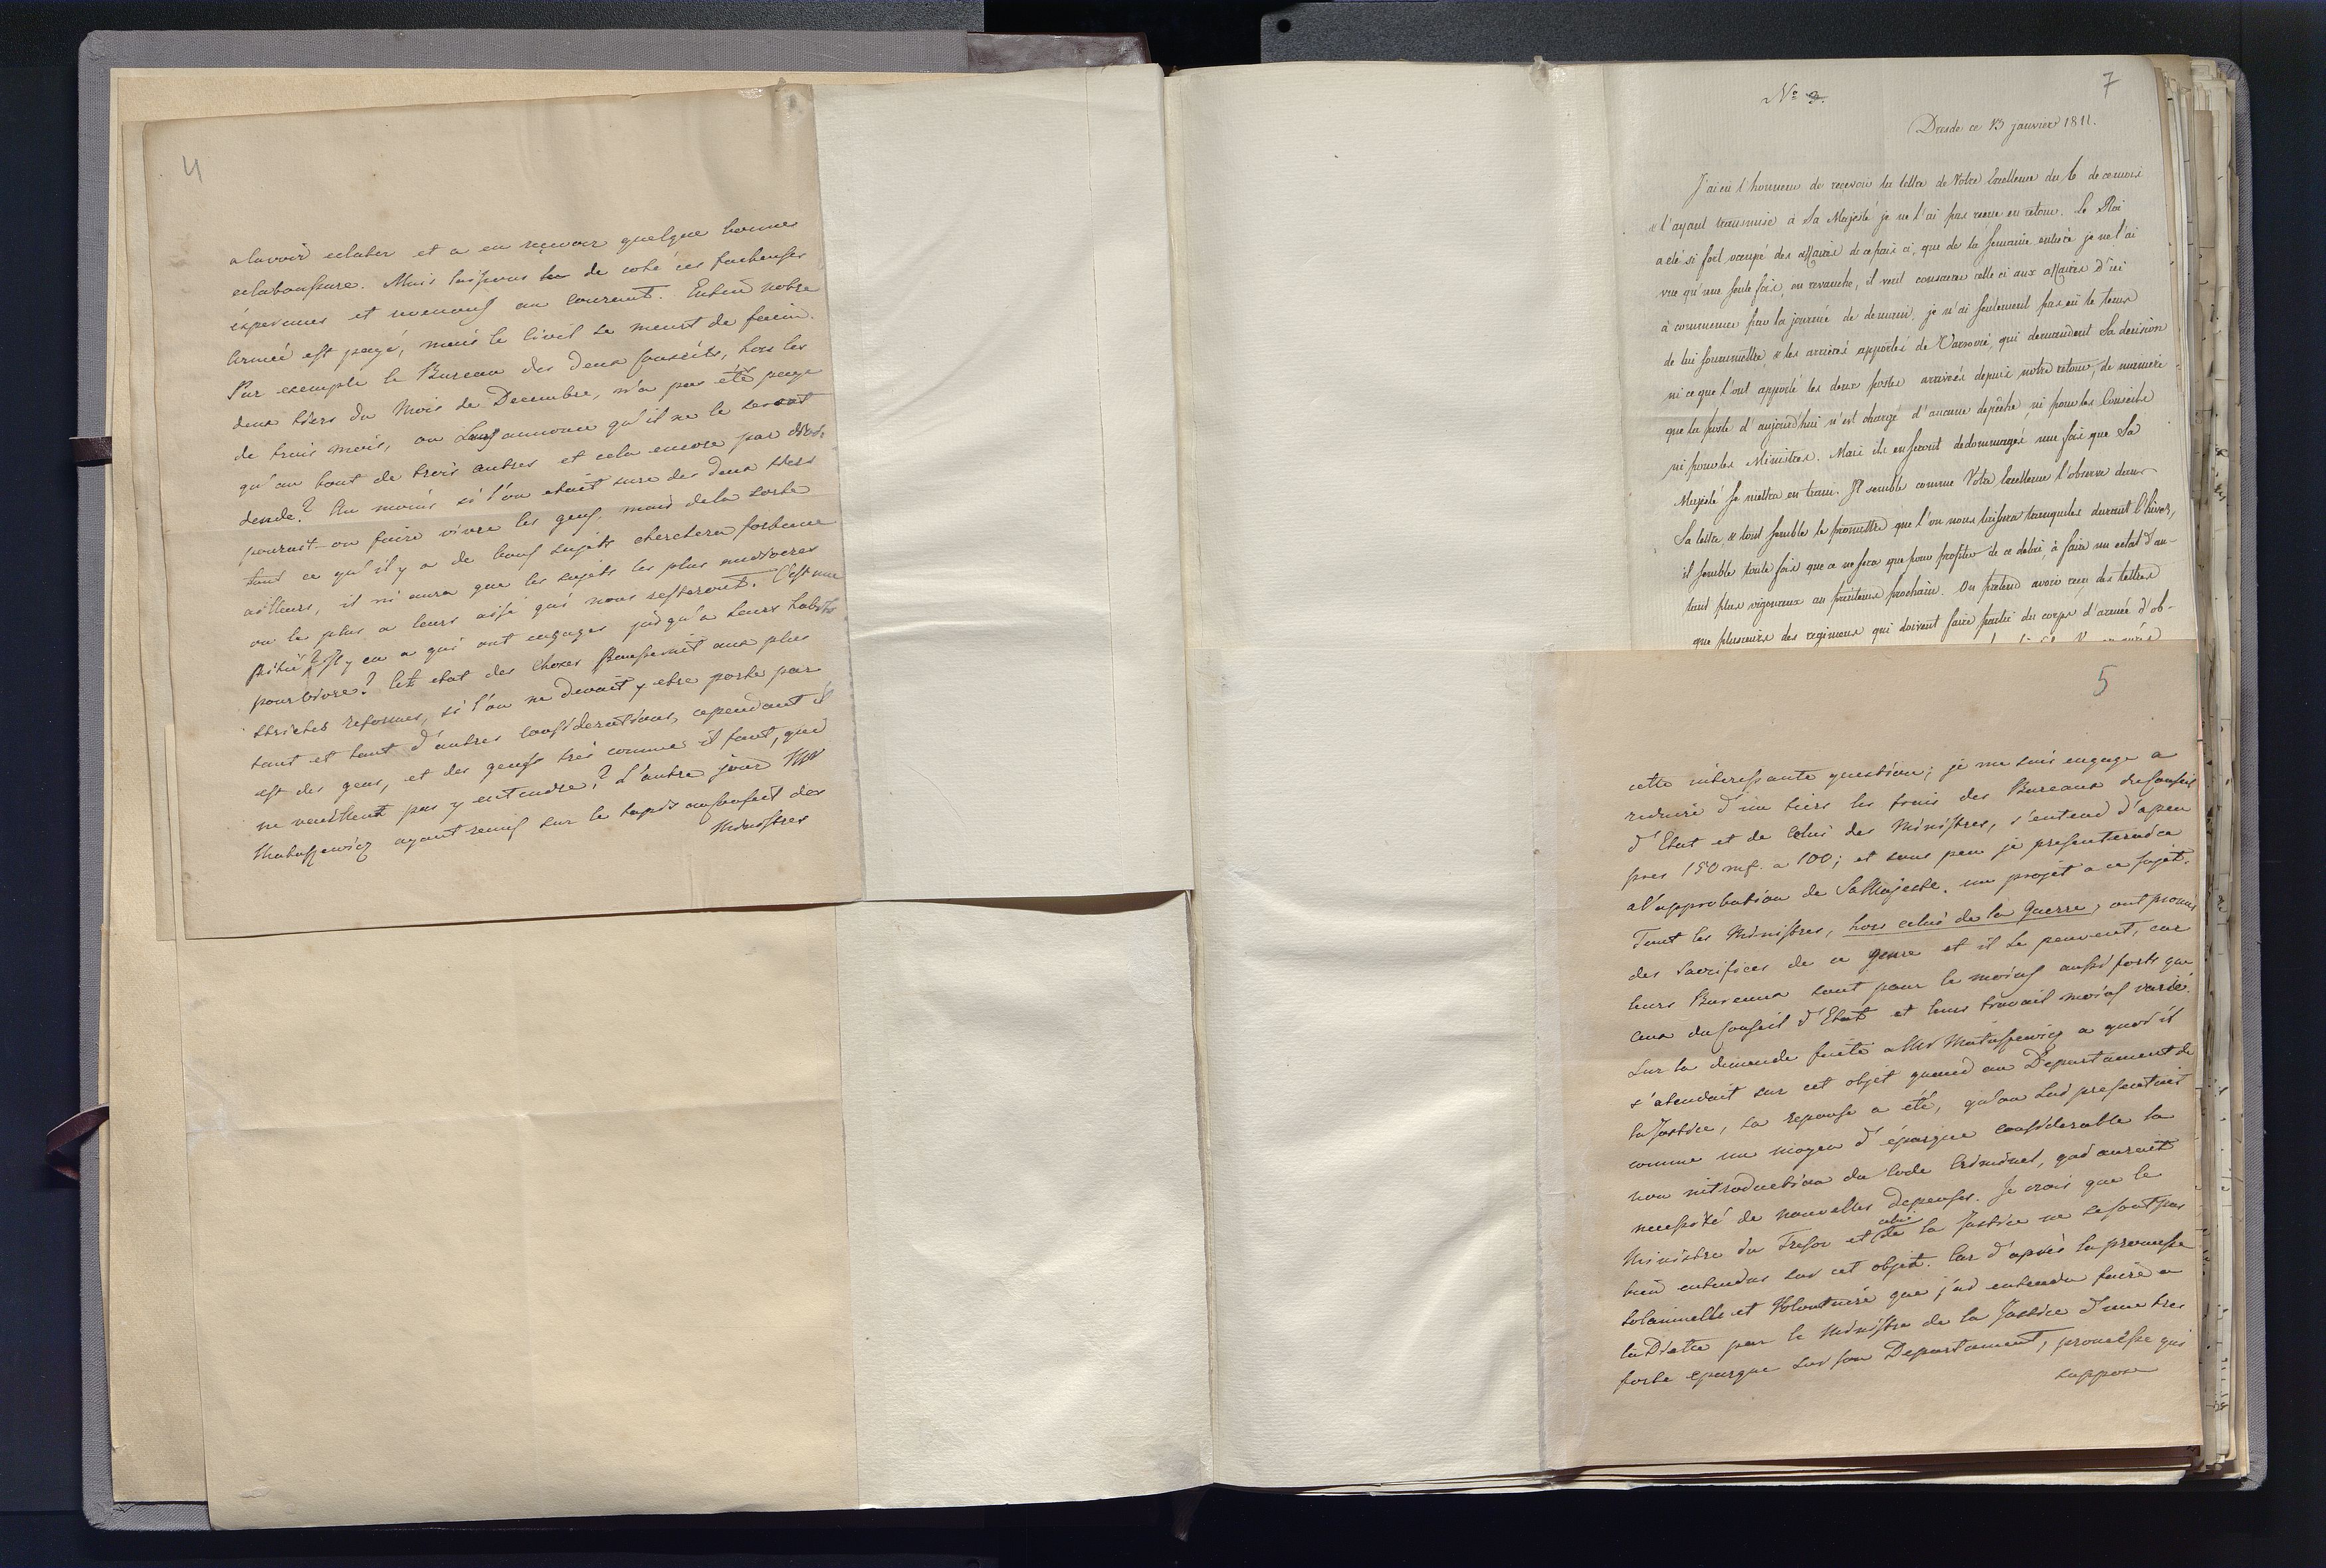 4
a la voir eclater et a en reçevoir quelque bonnes
eclaboussure. Mais laissons de coté ces facheuses
ésperances et revenons au courant. Enfin notre
Armée est payé, mais le Civil se meurt de faim.
Par exemple le Bureau des deux Conseils, hors les
deux tiers du Mois de Decembre, n'a pas été payé
de trois mois, on Leur annonce qu'il ne le seront
qu'au bout de trois autres et cela encore par
dende? Au moins si l'on etait sure des deux tiers
pourait-on faire vivre les gens, mais de la sorte
tout ce qu'il y a de bons sujets cherchera fortune
ailleurs, il ni aura que les sujets les plus mediocres
ou les plus a leurs aise qui nous resteront. C'est une
pitié! Il y en a qui ont engages jusqu'a leurs habits
pour vivre! Cet etat des choses pousserait aux plus
strictes reformes, si l'on ne devait y etre porté par
tant et tant d'autres considerations, cependant il
est des gens, et des gens très comme il faut, qui
ne veuillent pas y entendre? L'autre jour Mr
Matuszewicz ayant remis sur le tapis au Conseil des
Ministres
7
No 3.
Dresde ce 13 janvier 1811.
J'ai eû l'honneur de recevoir la lettre de Votre Excellence du 6 de ce mois
& l'ayant transmise à Sa Majesté je ne l'ai pas reçue en retour. Le Roi
a été si fort occupé des affaires de ce païs ci, que de la semaine entière je ne l'ai
vue qu'une seule fois, en revanche, il veut consacrer celle ci aux affaires d'ici
à commencer par la journée de demain. je n'ai seulement pas eû le tems
de lui soummettre & les arrièrés apportés de Varsovie, qui demandent Sa decision
ni ce que l'ont apporté les deux postes arrivées depuis notre retour, de manière
que la poste d'aujourd'hui n'est chargé d'aucune depêche, ni pour les Conseils
ni pour les Ministres. Mais ils en seront dedommagés une fois que Sa
Majesté se mettra en train. Il semble comme Votre Excellence l'observe dans
Sa lettre, & tout semble le promettre que l'on nous laissera tranquiles durant l'hiver,
il semble toute fois que ce ne sera que pour profiter de ce delai, à faire un eclat d'au-
tant plus vigoureux au printems prochain. On pretend avoir reçu des lettres
que plusieurs des regimens qui doivent faire partie du corps d'armée d'ob-
5
cette interessante question; je me suis engage a
reduire d'un tiers les frais des Bureaux du Conseil
d'Etat et de Celui des Ministres, s'entend d'apeu
pres 150 mf. a 100; et sous peu je presenterai ca
a l'approbation de Sa Majesté, un projet a ce sujet.
Tout les Ministres, hors celui de la Guerre, ont promis
des Sacrifices de ce genre et il le peuvent, car
leurs Bureaux sont pour le moins aussi forts que
Ceux du Conseil d'Etat et leurs travail moins varié.
Sur la demande faite a Mr Matuszewicz a quoi il
s'atendait sur cet objet quand au Departament de
la Justice, sa reponse a été, qu'on Lui presentait
comme un moyen d'épargne considerable la
non introduction du Code Criminel, qui aurait
necessité de nouvelles depenses. Je crois que le
Ministre du Tresor et celui de la Justice ne se sont pas
bien entendus sur cet objet. Car d'après la promesse
solamnelle et Volontaire que j'ai entendu faire a
la Diette par le Ministre de la Justice d'une tres
forte epargne sur son Departament, promesse qui
suppose